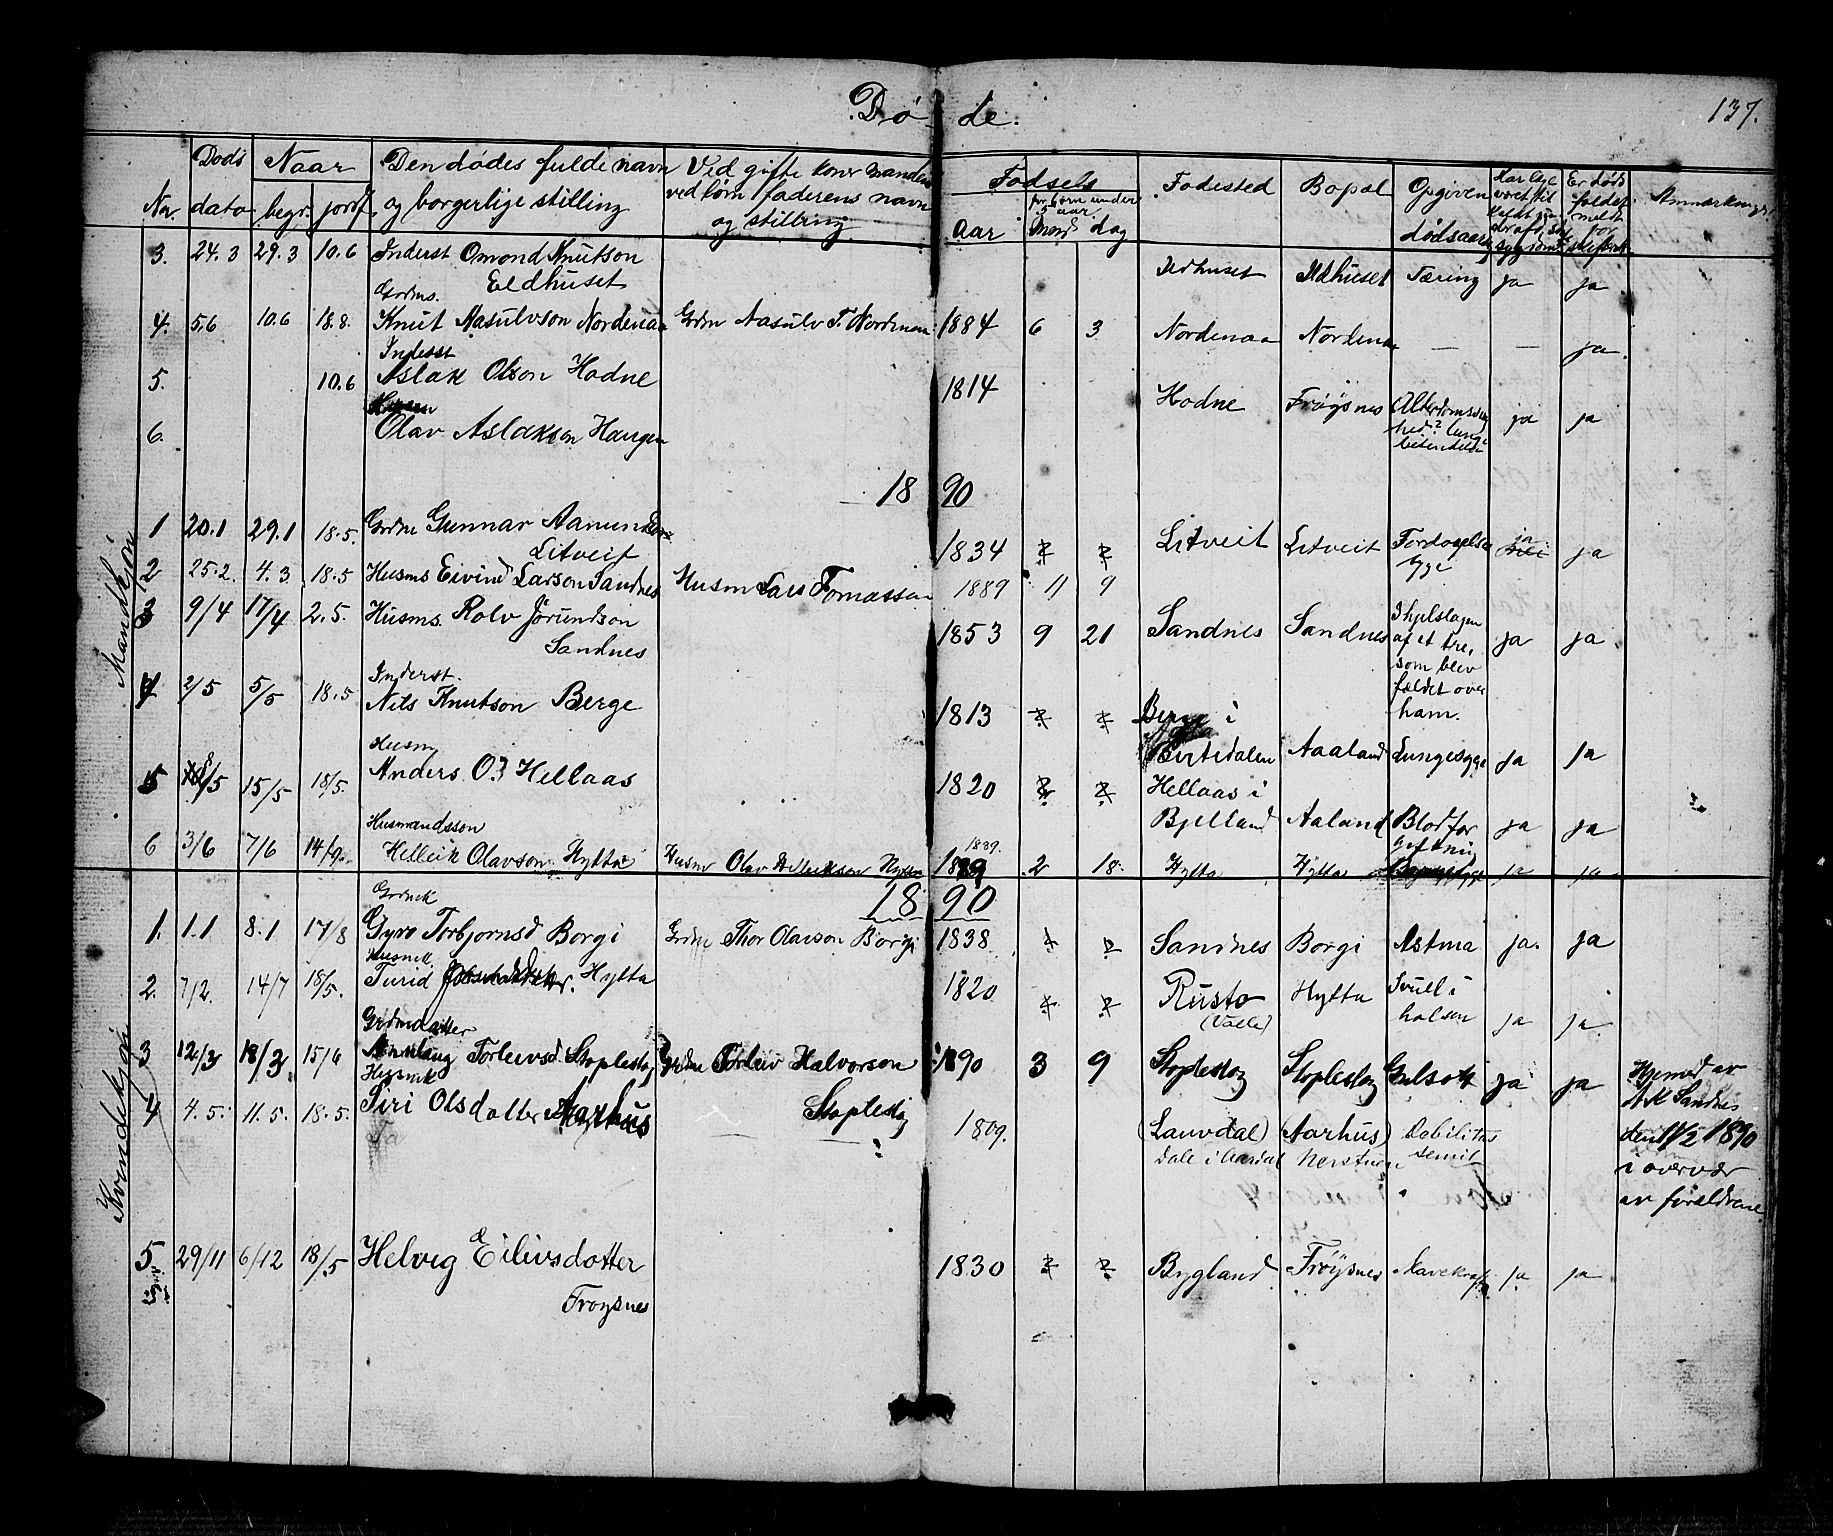 Dø de. 137.
Nr. Døds dato Naar begr. jordf. Den dødes fulde navn og borgerlige stilling Ved gifte koner mandens ved børn faderens navn og stilling Fødsels aar for børn under 5 aar. Mnd dag Fødested Bopæl Opgiven dødsaarsag Har læge været til Er døds faldet meldt for skifteret Anmerkninger
3. 24.3 29.3 10.6 Inderst Omond Knutson Eldhuset Ildhuset Ildhuset Tæring ja ja
4. 5.6 10.6 18.8. Grdms. Knut Aasulvson Nordenaa Grdm Aasulv T. Nordenaa 1884 6 3 Nordenaa Nordenaa — — ja.
5. 10.6 Inderst Aslak Olson Hodne 1814 Hodne Frøysnes Alderdomssvaghed? Lunge betendelse ja ja
6. Olav Aslakson Haugen
18 90
Mandkjøn
1 20.1 29.1 18.5. Grdm Gunnar Aamundson Litveit 1834 Litveit Litveit Fordøyelsessyge ja ja
2 25.2. 4.3 18.5 Husms Eivind Larson Sandnes Husm Lars Tomasson 1889 11 9
3 9/4 17/4 2.5. Husms. Rolv Jörundson Sandnes 1853 9 21 Sandnes Sandnes Ihjelslagen af et træ, som blev fældet over ham. ja ja
4 2/5 5/5 18.5 Inderst. Nils Knutson Berge 1813 Berge i Birtedalen Aaland Lungesyge ja ja
5 8/5 15/5 18/5. Husm Anders O3 Hellaas 1820 Hellaas i Bjelland Aaland Blodforgiftning ja ja
6 3/6 7/6 14/9. Husmandsson Helleik Olavson Hytta Husm Olav Helleikson Hytta 1889. 1889 2 18. Hytta Hytta ja ja
18 90
Kvindekjøn
1. 1.1 8.1 17/8 Grdmk Gyro Torbjornsd Borgi Grdm Thor Olavson Borgi 1838 Sandnes Borgi Astma ja. ja
2. 7/2. 14/7 18/5. Husmk Turid Hytta 1820 Rusto (Valle) Hytta Svull i halsen ja ja
3 12/3 18/3. 15/6 Grdmdatter Torleivsd. Stoplestøg Grdm Torleiv Halvorson Stoplestøg 1890 3 9 Stoplestøg Stoplestøg Gulsott ja ja Hjemed av N K Sandnes den 14/2 1890 i overvær av foreldrene.
4 4.5. 11.5. 18.5. Husmk Siri Olsdatter Aarhus 1809. (Lauvdal) Dale i Aardal (Aarhus) Nerstuen Debilitas senil
5 29/11 6/12 18/5 Helvig Eilivsdotter Frøysnes 1830 Bygland. Frøysnes Mavekræft ja ja